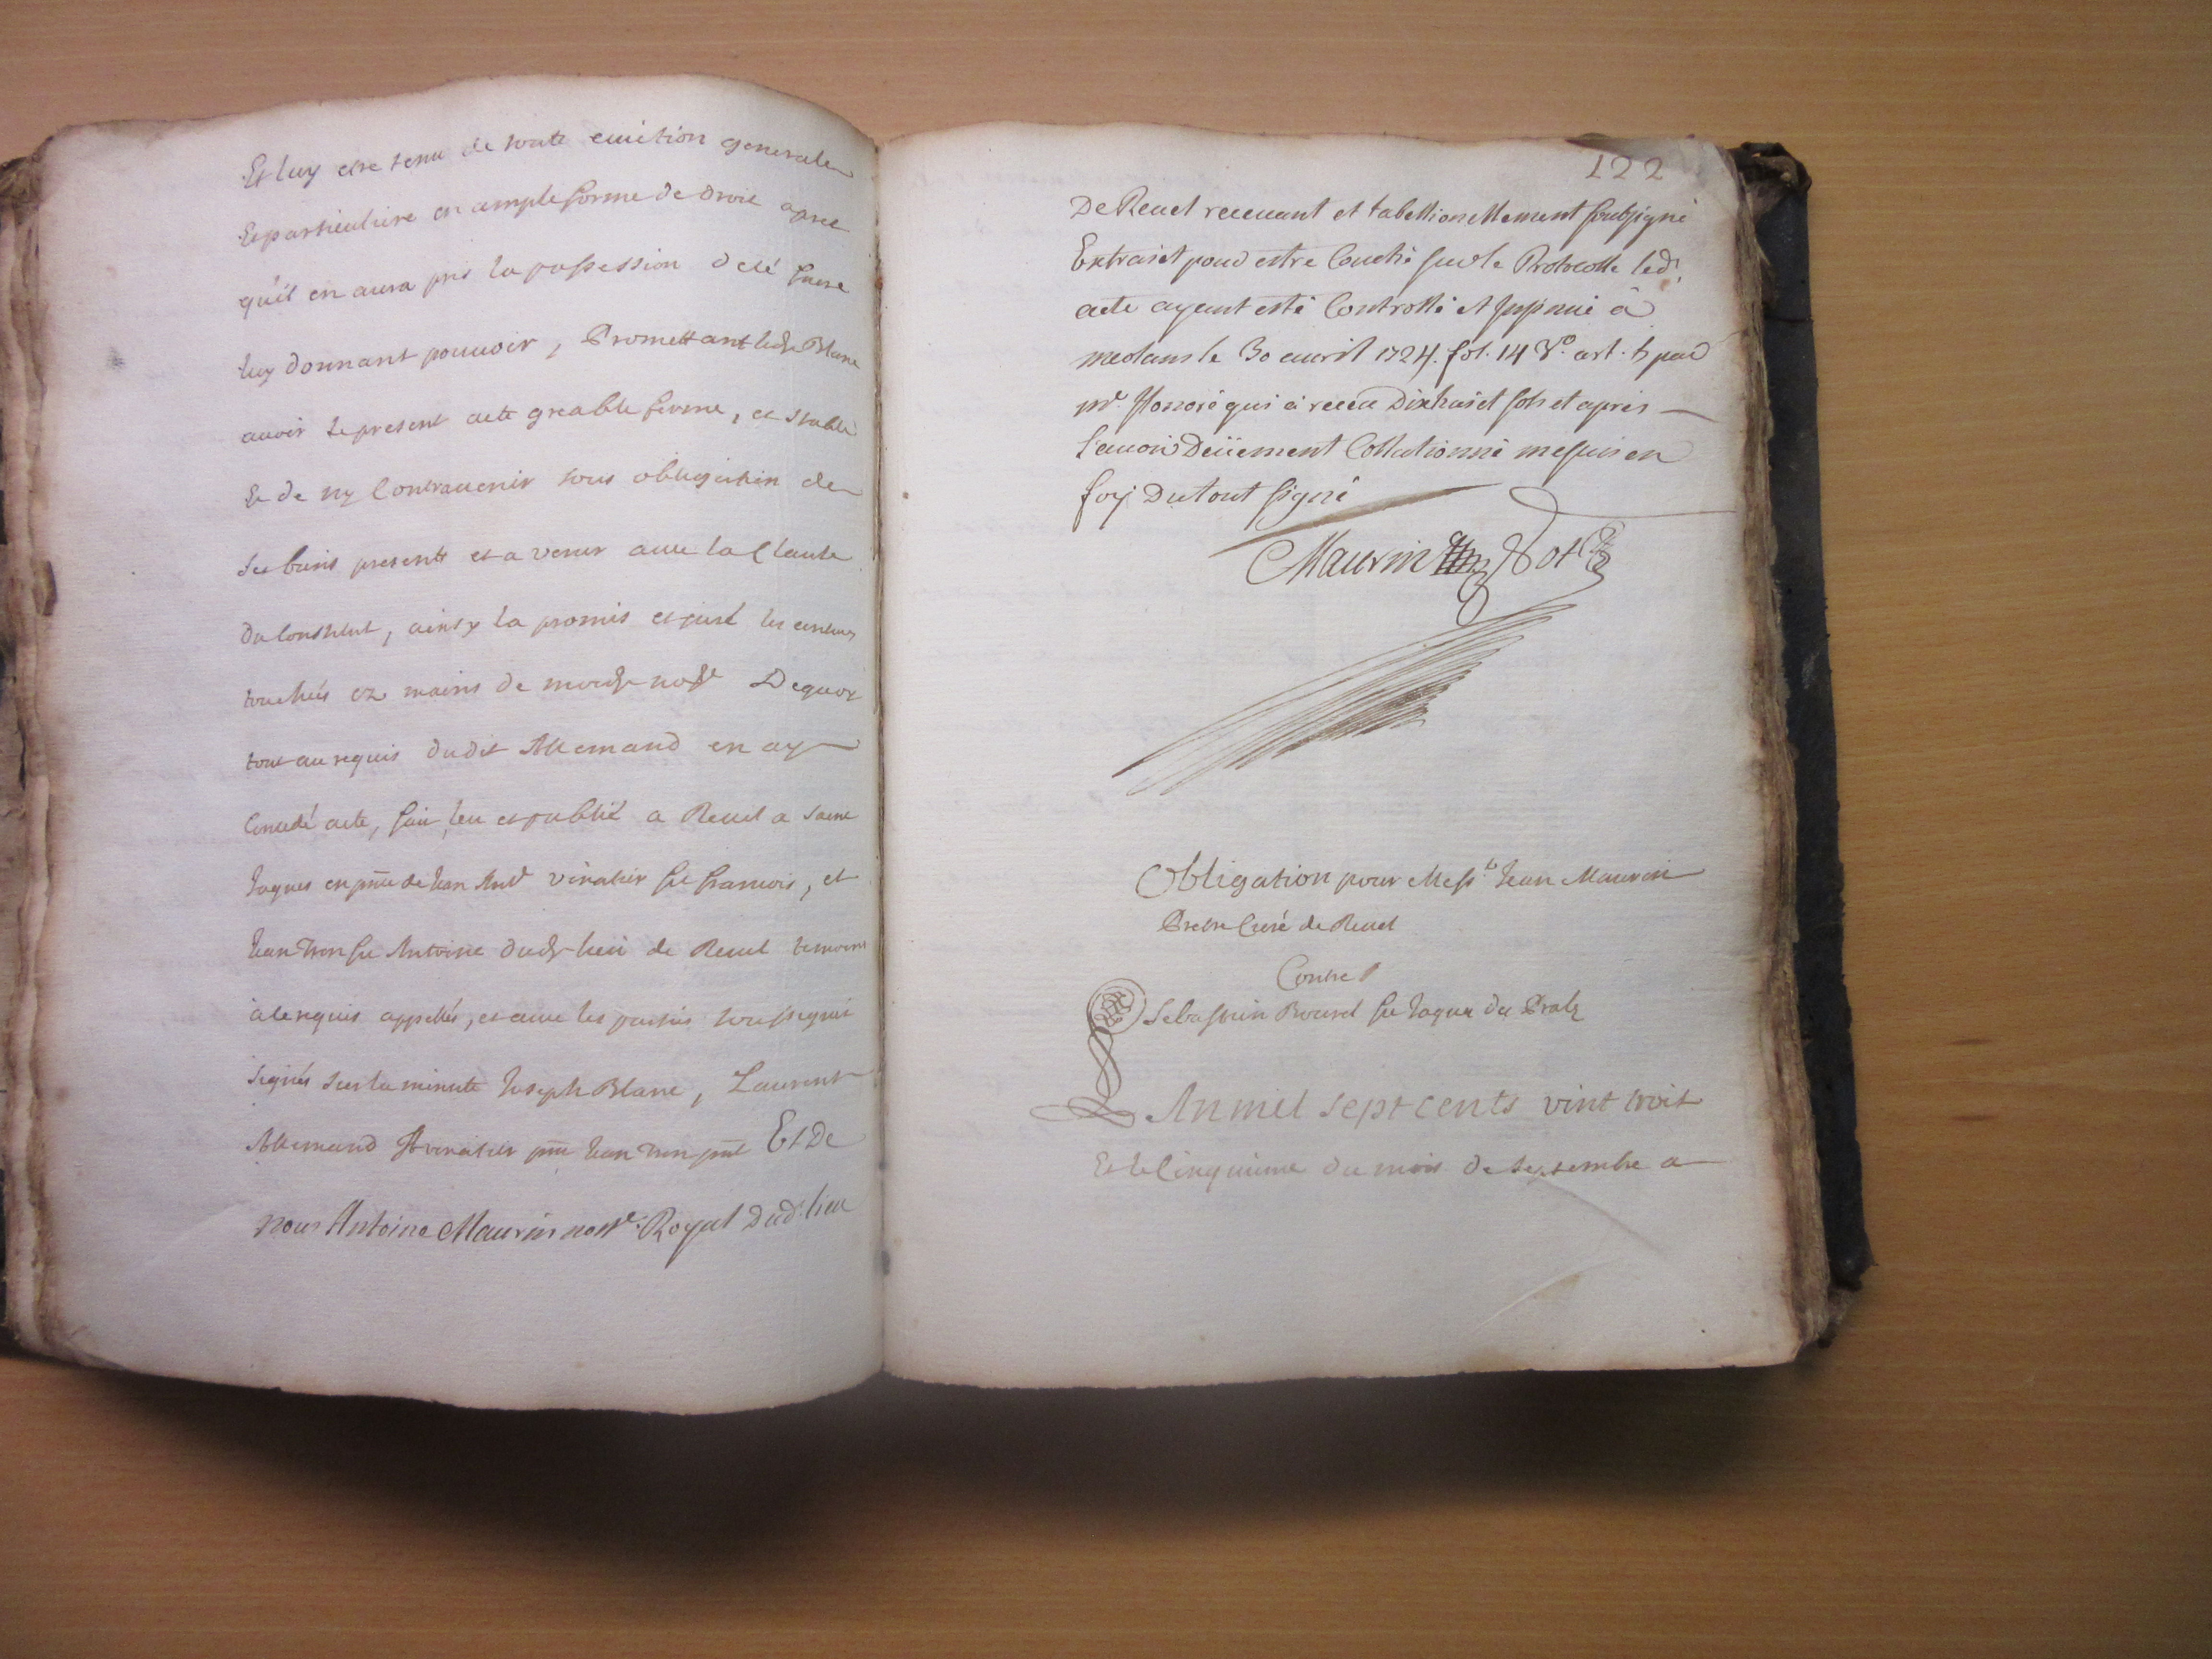 Et luy etre tenu de toute euiction generale
Et particuliere en ample forme de droit apres
qu'il en aura pris la possession de cé faire
luy donnant pouuoir, Promettant ledt Blanc
auoir le present acte greable ferme, et stable
Et de ny Contrauenir sous obligation de
ses biens presents et a venir auec la Clause
du Constitut, ainsy la promis et juré les
touchés ez mains de moudt nore Dequoy
tout au requis dudit Allemand en ay
Concedé acte, fait leu et publié a Reuel a saint
Jaques en pnce de Jean Antne vinatier feu francois, et
Jean Tron feu Antoine dudt lieu de Reuel temoins
a le requis appellés, et auec les parties soussignés
signés sur la minute Joseph Blanc, Laurent
Allemand A vinatier pnt Jean Tron pnt Et De
nous Antoine Maurin nore. Royal Dud. lieu
122
De Reuel receuant et tabellionellement soubsigné
Extrait pour estre Couché sur le Protocolle led.
acte ayant esté Controllé et Insinué à
medans le 30 auril 1724. fol. 14 Vo. art. 5 par
mr. Honoré qui a receu Dixhuict sols et apres
l'auoir Deüement Collationné me suis en
foy Du tout signé
Maurin Not
Obligation pour Messe. Jean Maurin
Pretre Curé de Reuel
Contre
Sebastien Bourel feu Jaques du Prats
L An mil sept cents vint trois
Et le Cinquieme du mois de septembre a